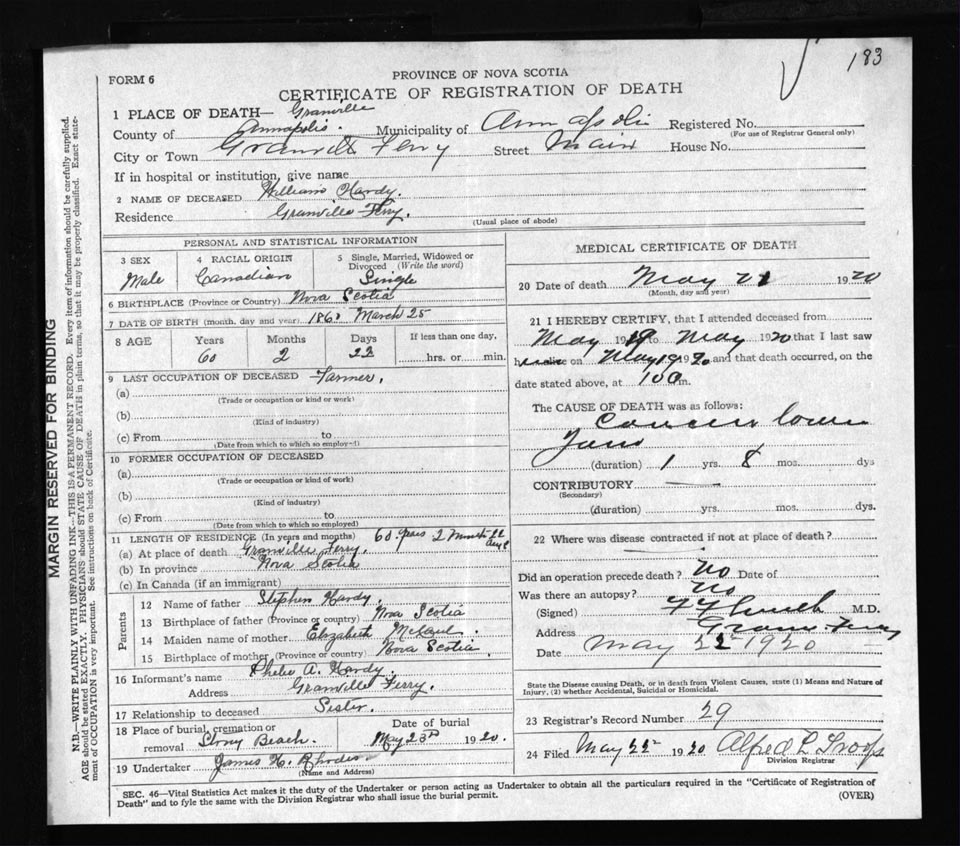 183
FORM 6
PROVINCE OF NOVA SCOTIA
CERTIFICATE OF REGISTRATION OF DEATH
1 PLACE OF DEATH— Granville
County of Annapolis. Municipality of Annapolis Registered No.
(For use of Registrar General only)
City or Town Granville Ferry Street Main House No.
If in hospital or institution, give name
2 NAME OF DECEASED William Hardy.
Residence Granville Ferry.
(Usual place of abode)
PERSONAL AND STATISTICAL INFORMATION
3 SEX 4 RACIAL ORIGIN 5 Single, Married, Widowed or Divorced (Write the word)
Male Canadian Single
6 BIRTHPLACE (Province or Country) Nova Scotia
7 DATE OF BIRTH (month, day and year) March 25
8 AGE Years Months Days If less than one day,
60 2 22 hrs. or min.
9 LAST OCCUPATION OF DECEASED Farmer.
(a)
(Trade or occupation or kind or work)
(b)
(Kind of industry)
(c) From to
(Date from which to which so employed)
10 FORMER OCCUPATION OF DECEASED
(a)
(Trade or occupation or kind of work)
(b)
(Kind of industry)
(c) From to
(Date from which to which so employed)
11 LENGTH OF RESIDENCE (In years and months) 60 years 2 months 22
(a) At place of death Granville Ferry.
(b) In province Nova Scotia
(c) In Canada (if an immigrant)
Parents
12 Name of father Stephen Hardy.
13 Birthplace of father (Province or country) Nova Scotia
14 Maiden name of mother Elizabeth
15 Birthplace of mother (Province or country) Nova Scotia.
16 Informant's name Phebe A. Hardy
Address Granville Ferry.
17 Relationship to deceased Sister.
18 Place of burial, cremation or removal Stony Beach. Date of burial May 23rd 1920.
19 Undertaker James H. Rhodes
(Name and Address)
MEDICAL CERTIFICATE OF DEATH
20 Date of death May 21 1920
(Month, day and year)
21 I HEREBY CERTIFY, that I attended deceased from
May 19 to May 1920 that I last saw
h alive on May 19 1920 and that death occurred, on the
date stated above, at m.
The CAUSE OF DEATH was as follows:
Cancer lower
Jaw
(duration) 1 yrs. 8 mos. dys
CONTRIBUTORY
(Secondary)
(duration) yrs. mos. dys.
22 Where was disease contracted if not at place of death?
Did an operation precede death? No Date of
Was there an autopsy? No
(Signed) M.D.
Address Gran Ferry
Date May 22 1920
State the Disease causing Death, or in death from Violent Causes, state (1) Means and Nature of
Injury, (2) whether Accidental, Suicidal or Homicidal.
23 Registrar's Record Number 29
24 Filed May 22 1920 Alfred L Troop
Division Registrar
SEC. 46—Vital Statistics Act makes it the duty of the Undertaker or person acting as Undertaker to obtain all the particulars required in the "Certificate of Registration of
Death" and to fyle the same with the Division Registrar who shall issue the burial permit.
(OVER)
MARGIN RESERVED FOR BINDING
N.B.—WRITE PLAINLY WITH UNFADING INK—THIS IS A PERMANENT RECORD. Every item of information should be carefully supplied.
AGE should be stated EXACTLY. PHYSICIANS should STATE CAUSE OF DEATH in plain terms, so that it may be properly classified. Exact state-
ment of OCCUPATION is very important. See instructions on back of Certificate.